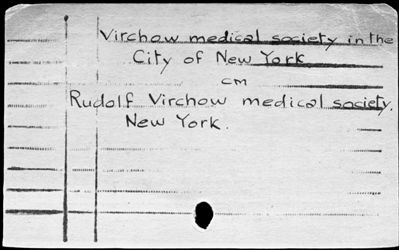 Virchow medical society in the
City of New York
cm
Rudolf Virchow medical society.
New York.